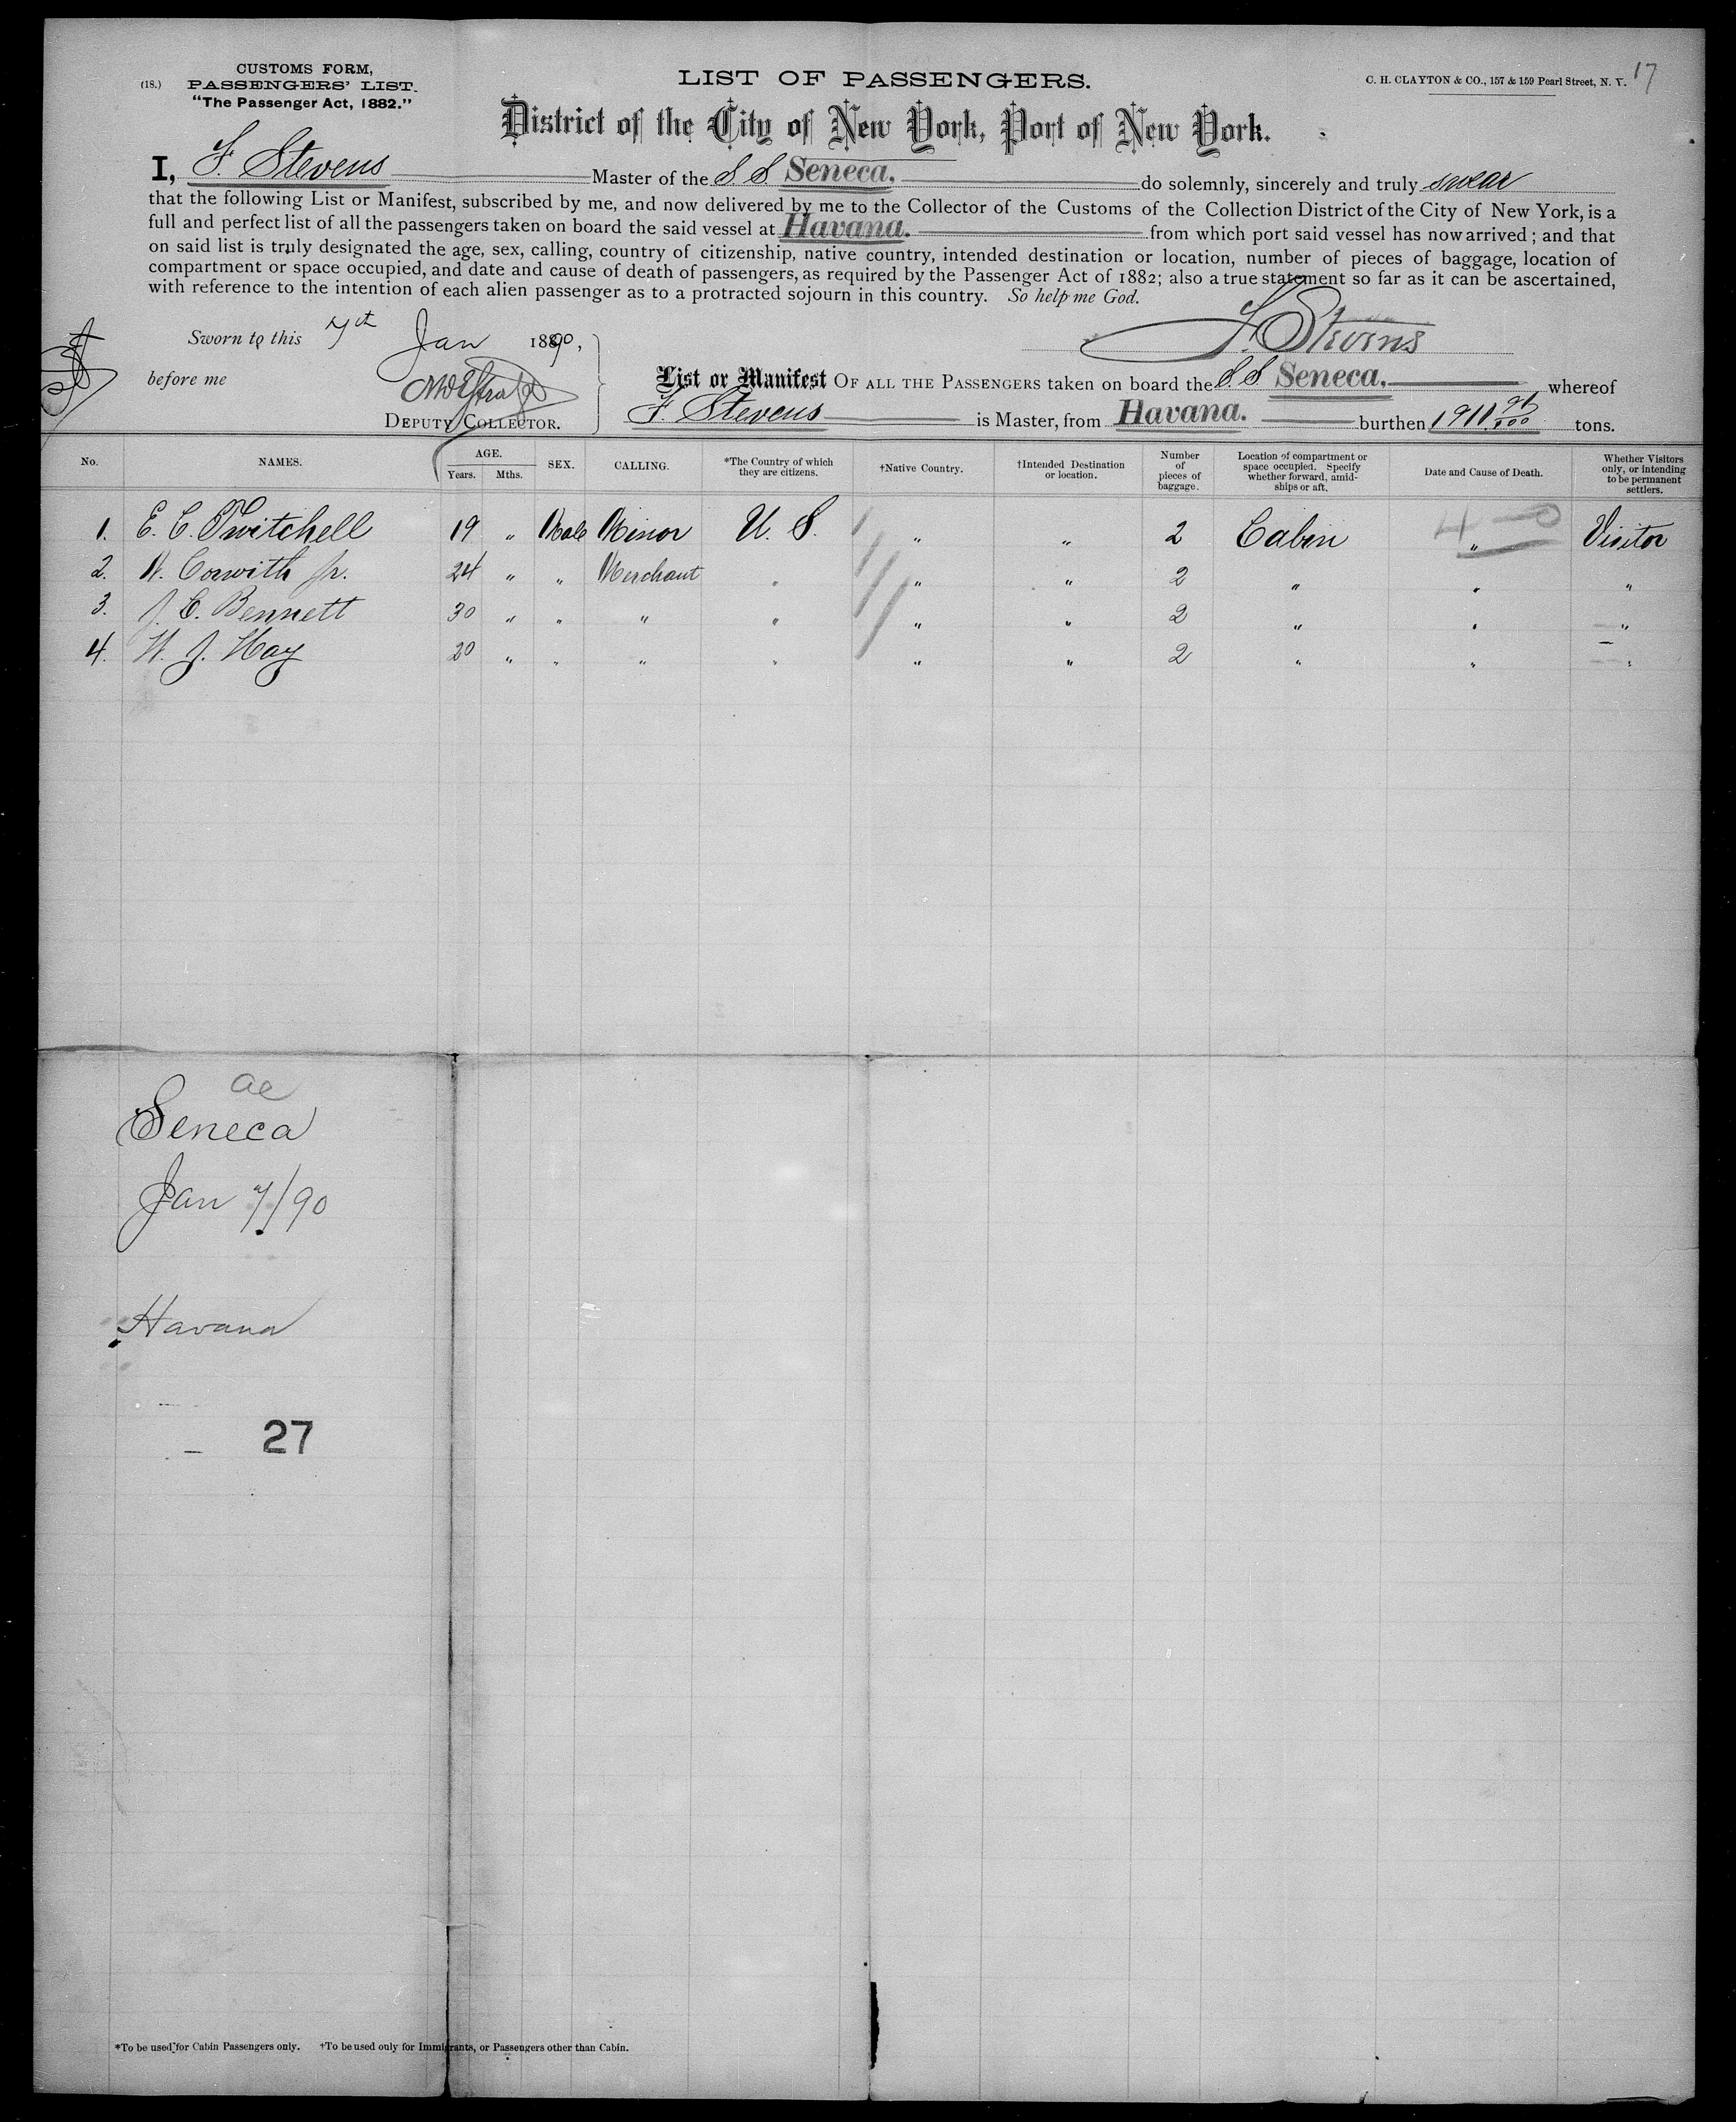 CUSTOMS FORM,
(18.) PASSENGERS' LIST.
"The Passenger Act, 1882."
LIST OF PASSENGERS.
C. H. CLAYTON & CO., 157 & 159 Pearl Street, N. Y.
17
District of the City of New York, Port of New York.
I, F. Stevens Master of the S. S. Seneca. do solemnly, sincerely and truly swear
that the following List or Manifest, subscribed by me, and now delivered by me to the Collector of the Customs of the Collection District of the City of New York, is a
full and perfect list of all the passengers taken on board the said vessel at Havana. from which port said vessel has now arrived; and that
on said list is truly designated the age, sex, calling, country of citizenship, native country, intended destination or location, number of pieces of baggage, location of
compartment or space occupied, and date and cause of death of passengers, as required by the Passenger Act of 1882; also a true statement so far as it can be ascertained,
with reference to the intention of each alien passenger as to a protracted sojourn in this country. So help me God.
Sworn to this 7th Jan 1890,
F. Stevens
before me
DEPUTY COLLECTOR.
List or Manifest OF ALL THE PASSENGERS taken on board the S. S. Seneca. whereof
F. Stevens is Master, from Havana. burthen 1911 tons.
No. NAMES. AGE. Years. Mths. SEX. CALLING. *The Country of which they are citizens. †Native Country. †Intended Destination or location. Number of pieces of baggage. Location of compartment or space occupied. Specify whether forward, amidships or aft. Date and Cause of Death. Whether Visitors only, or intending to be permanent settlers.
1. E. C. Twitchell 19 " Male Minor U. S. " " 2 Cabin " Visitor
2. N. Corwith Jr. 24 " " Merchant " " " 2 " " "
3. J. C. Bennett 30 " " " " " " 2 " " "
4. W. J. Hay 20 " " " " " " 2 " " "
4-0
ae
Seneca
Jan 7/90
Havana
27
*To be used for Cabin Passengers only. †To be used only for Immigrants, or Passengers other than Cabin.